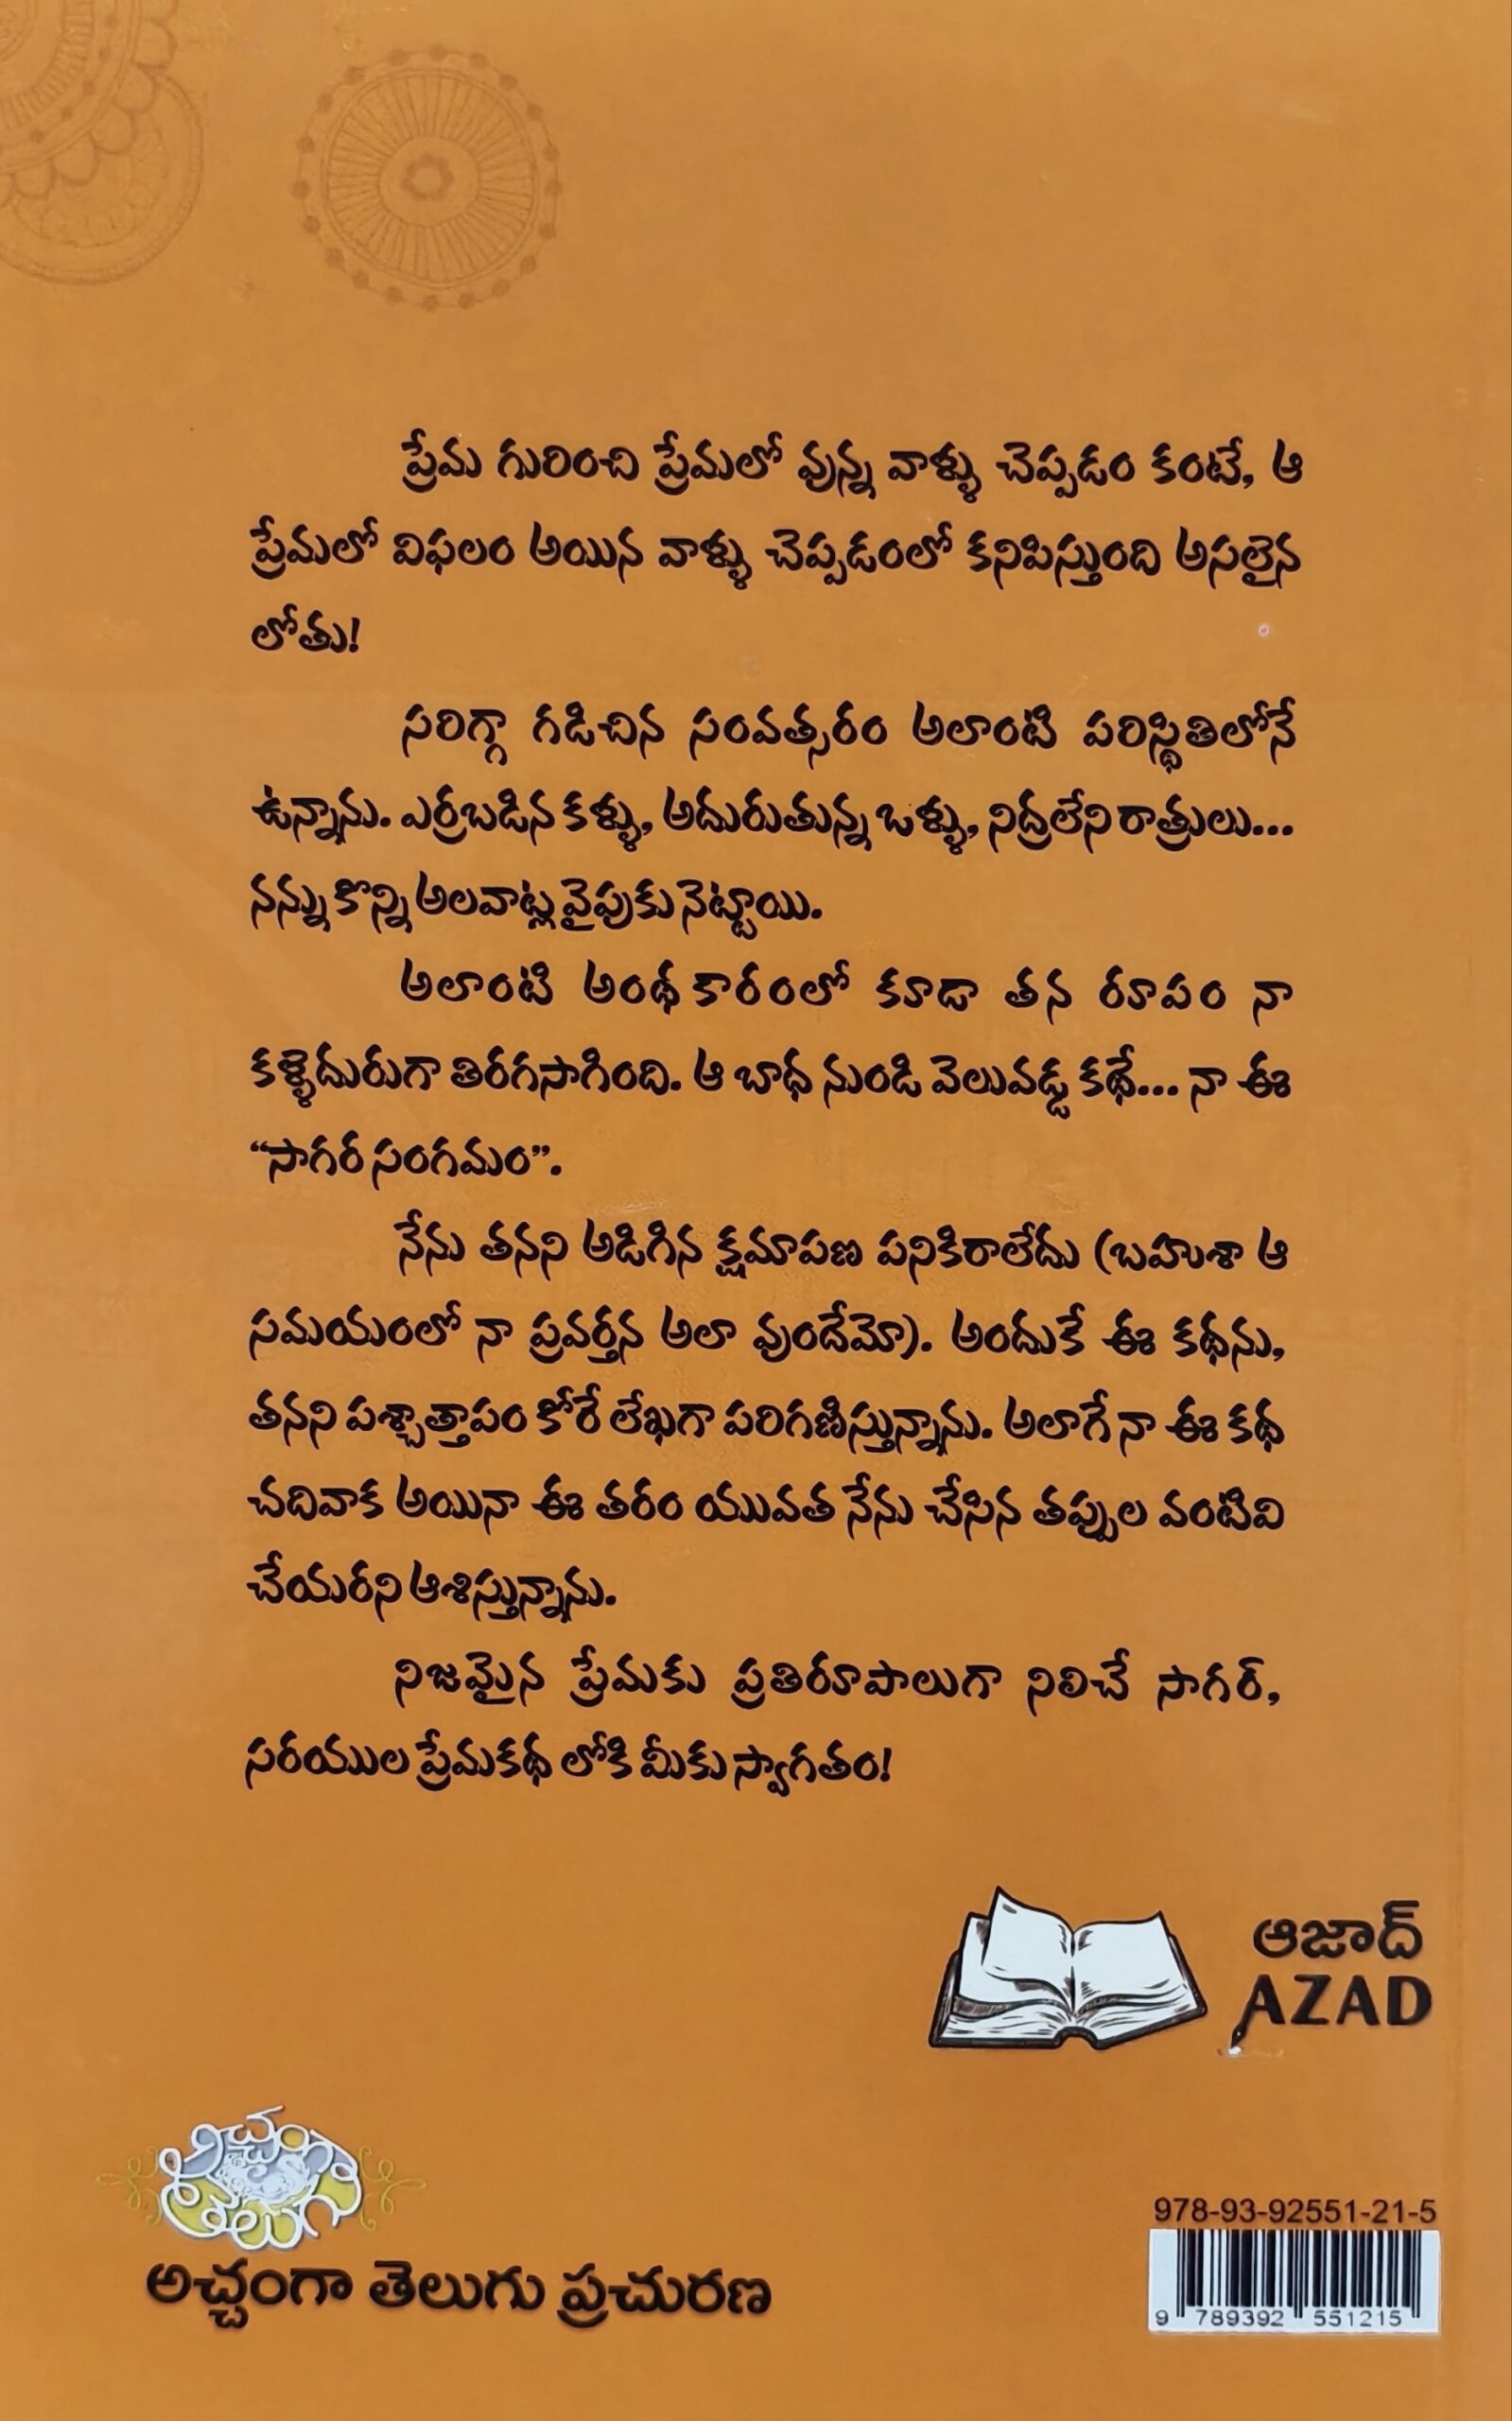 ప్రేమ గురించి ప్రేమలో వున్న వాళ్ళు చెప్పడం కంటే, ఆ
ప్రేమలో విఫలం అయిన వాళ్ళు చెప్పడంలో కనిపిస్తుంది అసలైన
లోతు!
సరిగ్గా గడిచిన సంవత్సరం అలాంటి పరిస్థితిలోనే
ఉన్నాను. ఎర్రబడిన కళ్ళు, అదురుతున్న ఒళ్ళు, నిద్రలేని రాత్రులు...
నన్ను కొన్ని అలవాట్ల వైపుకు నెట్టాయి.
అలాంటి అంధకారంలో కూడా తన రూపం నా
కళ్ళెదురుగా తిరగసాగింది. ఆ బాధ నుండి వెలువడ్డ కథే... నా ఈ
“సాగర సంగమం”.
నేను తనని అడిగిన క్షమాపణ పనికిరాలేదు (బహుశా ఆ
సమయంలో నా ప్రవర్తన అలా వుందేమో). అందుకే ఈ కథను,
తనని పశ్చాత్తాపం కోరే లేఖగా పరిగణిస్తున్నాను. అలాగే నా ఈ కథ
చదివాక అయినా ఈ తరం యువత నేను చేసిన తప్పుల వంటివి
చేయరని ఆశిస్తున్నాను.
నిజమైన ప్రేమకు ప్రతిరూపాలుగా నిలిచే సాగర్,
సరయుల ప్రేమకథ లోకి మీకు స్వాగతం!
ఆజాద్
AZAD
అచ్చంగా
తెలుగు
అచ్చంగా తెలుగు ప్రచురణ
978-93-92551-21-5
9 789392 551215